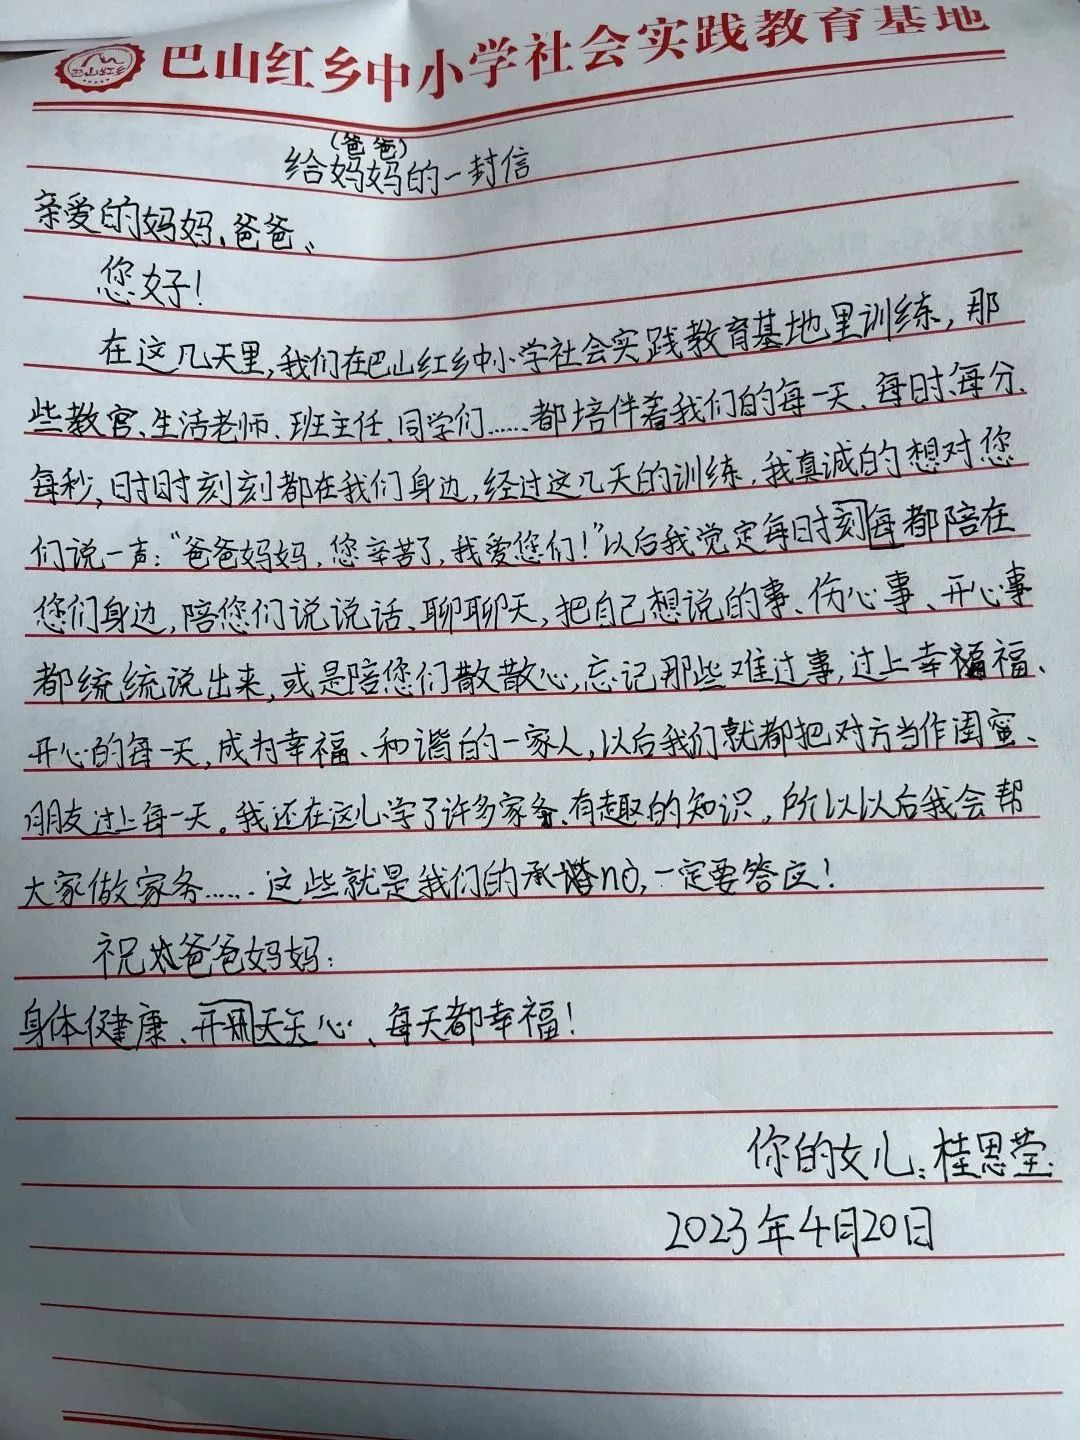 巴山红乡
巴山红乡中小学社会实践教育基地
(爸爸)
给妈妈的一封信
亲爱的妈妈、爸爸、
您好!
在这几天里,我们在巴山红乡中小学社会实践教育基地里训练,那
些教官、生活老师、班主任、同学们……都培伴着我们的每一天、每时、每分、
每秒,时时刻刻都在我们身边,经过这几天的训练,我真诚的想对您
们说一声:“爸爸妈妈,您辛苦了,我爱您们!”以后我觉定每时刻每都陪在
您们身边,陪您们说说话、聊聊天,把自己想说的事、伤心事、开心事
都统统说出来,或是陪您们散散心,忘记那些难过事,过上幸福、
开心的每一天,成为幸福、和谐的一家人,以后我们就都把对方当作闺蜜、
朋友过上每一天。我还在这儿学了许多家务、有趣的知识,所以以后我会帮
大家做家务……这些就是我们的承nò,一定要答应!
祝爸爸妈妈:
身体健康、开天天心、每天都幸福!
你的女儿:桂思莹
2023年4月20日